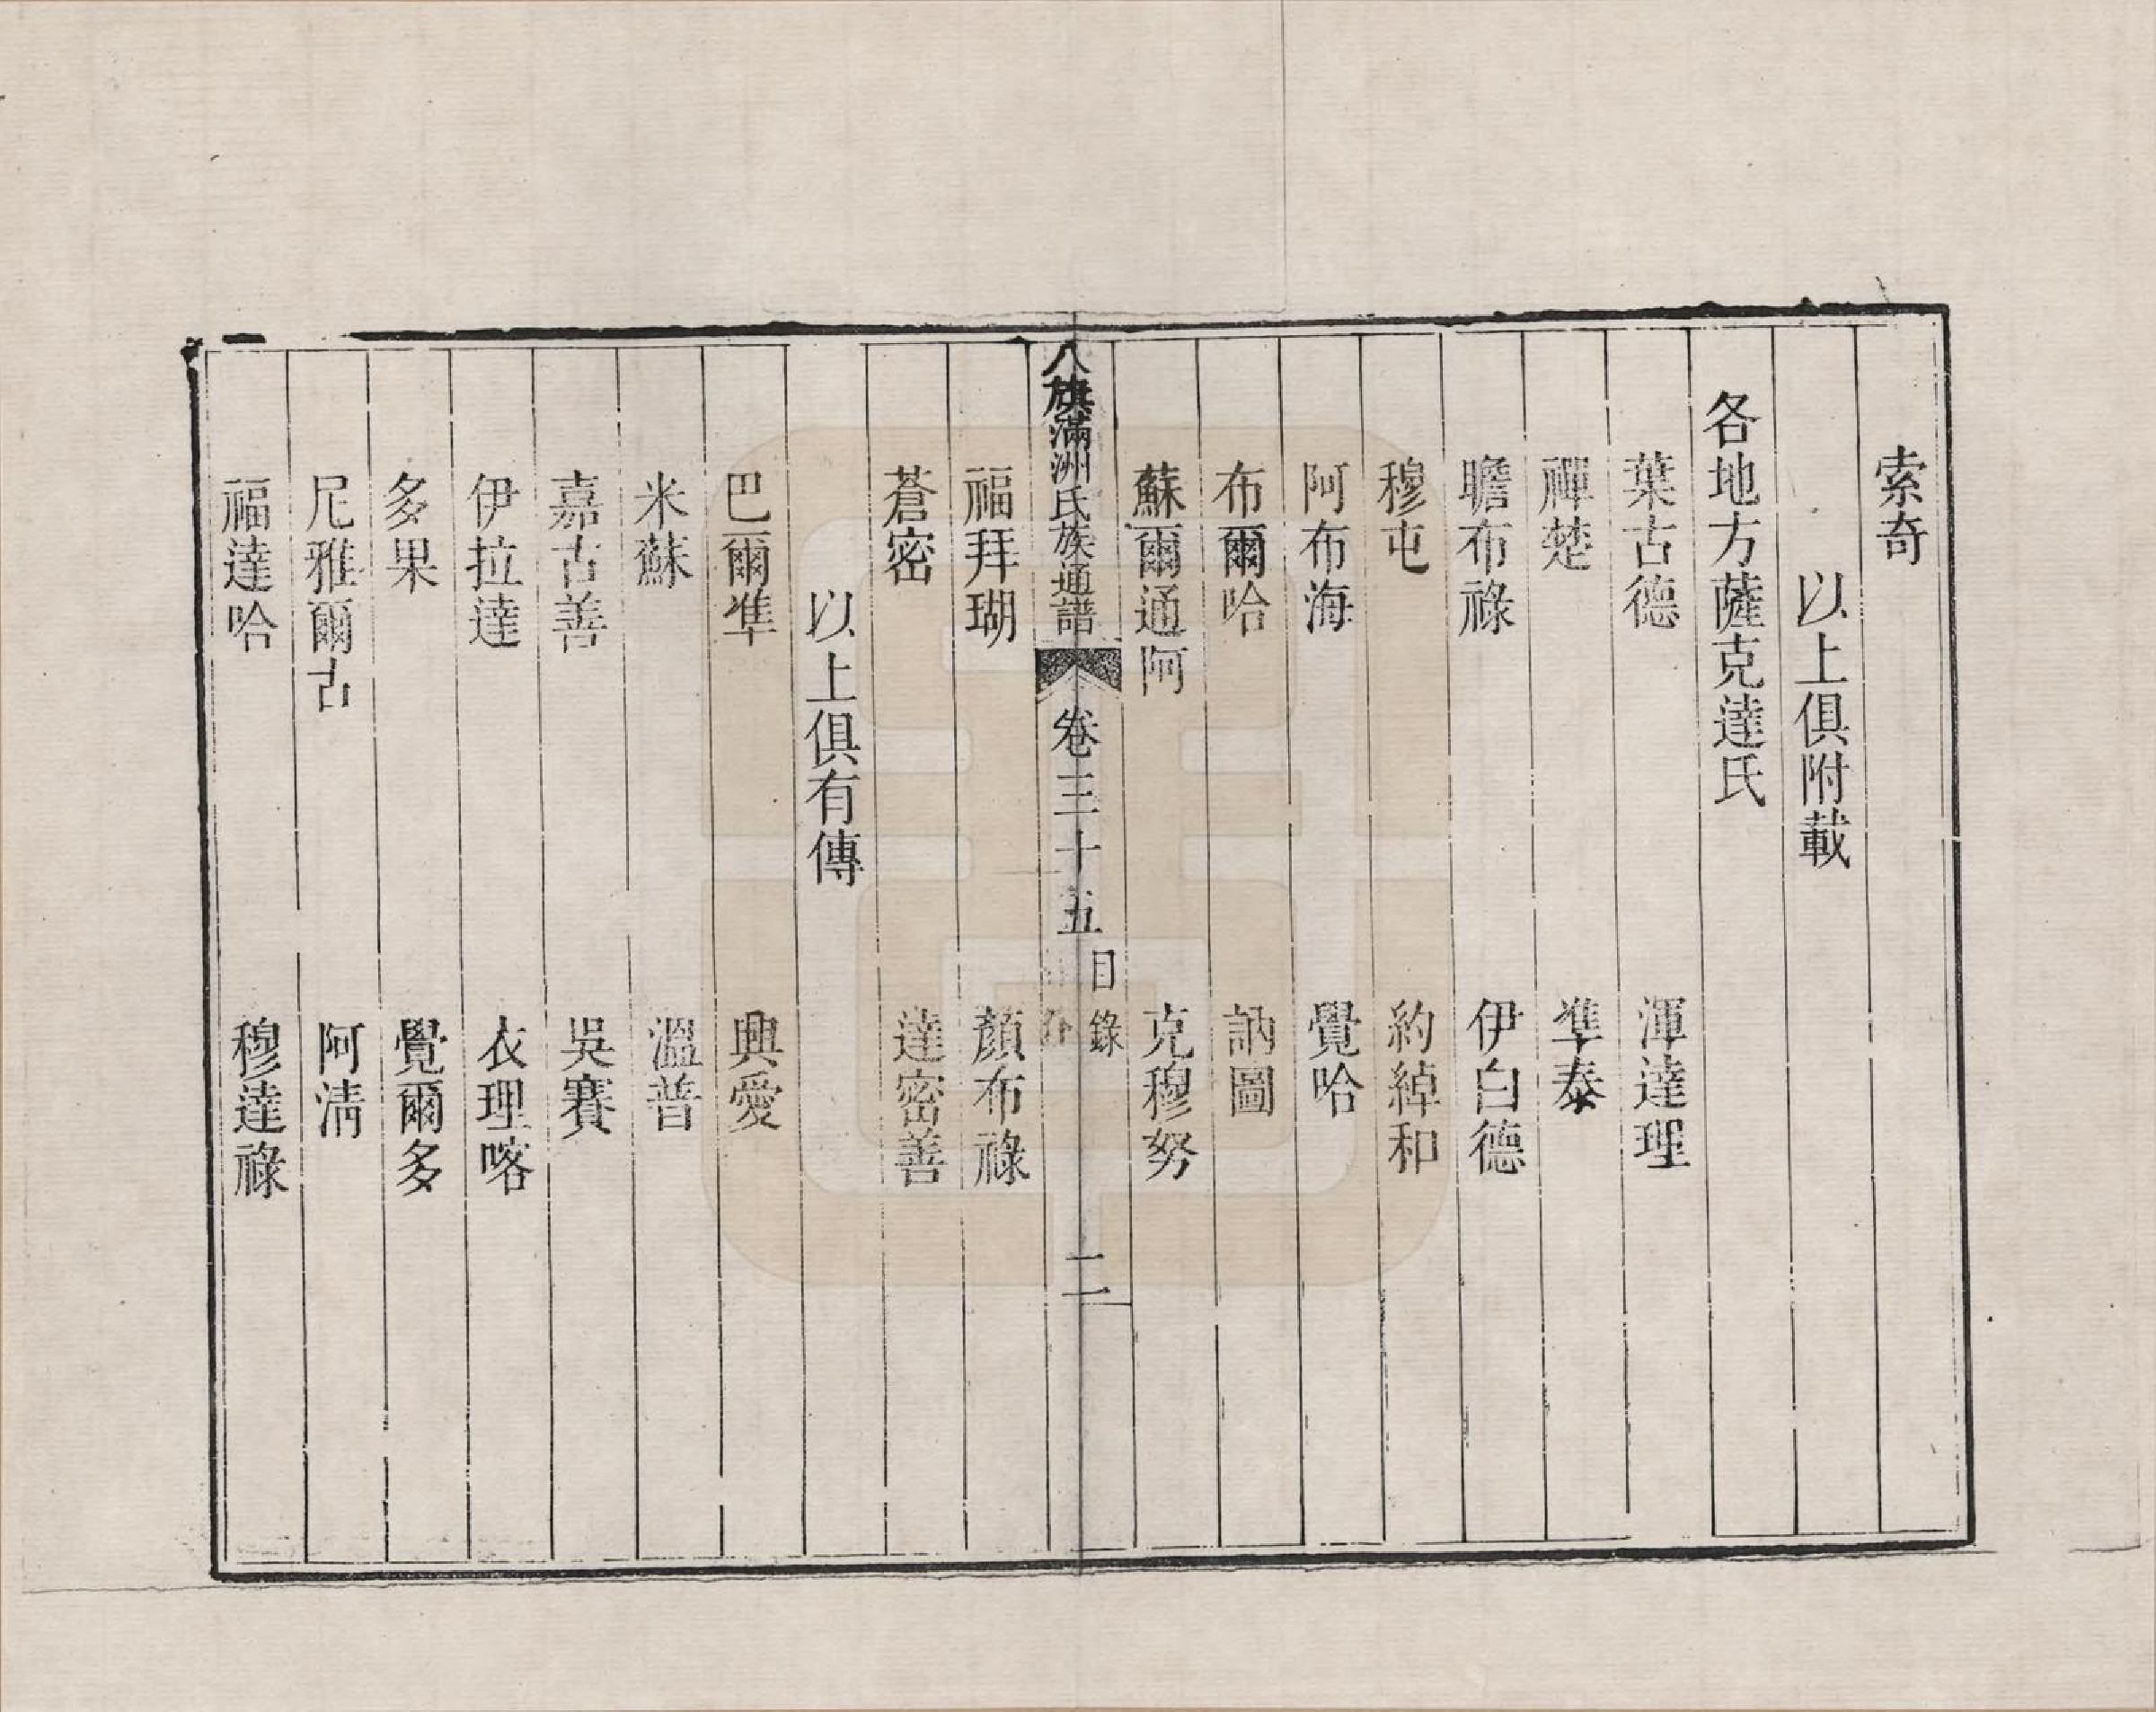 索奇
以上俱附載
各地方薩克達氏
葉古德　渾達理
禪楚　準泰
瞻布祿　伊白德
穆屯　約綽和
阿布海　覺哈
布爾哈　訥圖
蘇爾通阿　克穆努
八旗滿洲氏族通譜　卷三十五　目錄　二
福拜瑚　顏布祿
蒼密　達密善
以上俱有傳
巴爾準　興愛
米蘇　溫普
嘉古善　吳賽
伊拉達　衣理喀
多果　覺爾多
尼雅爾古　阿淸
福達哈　穆達祿